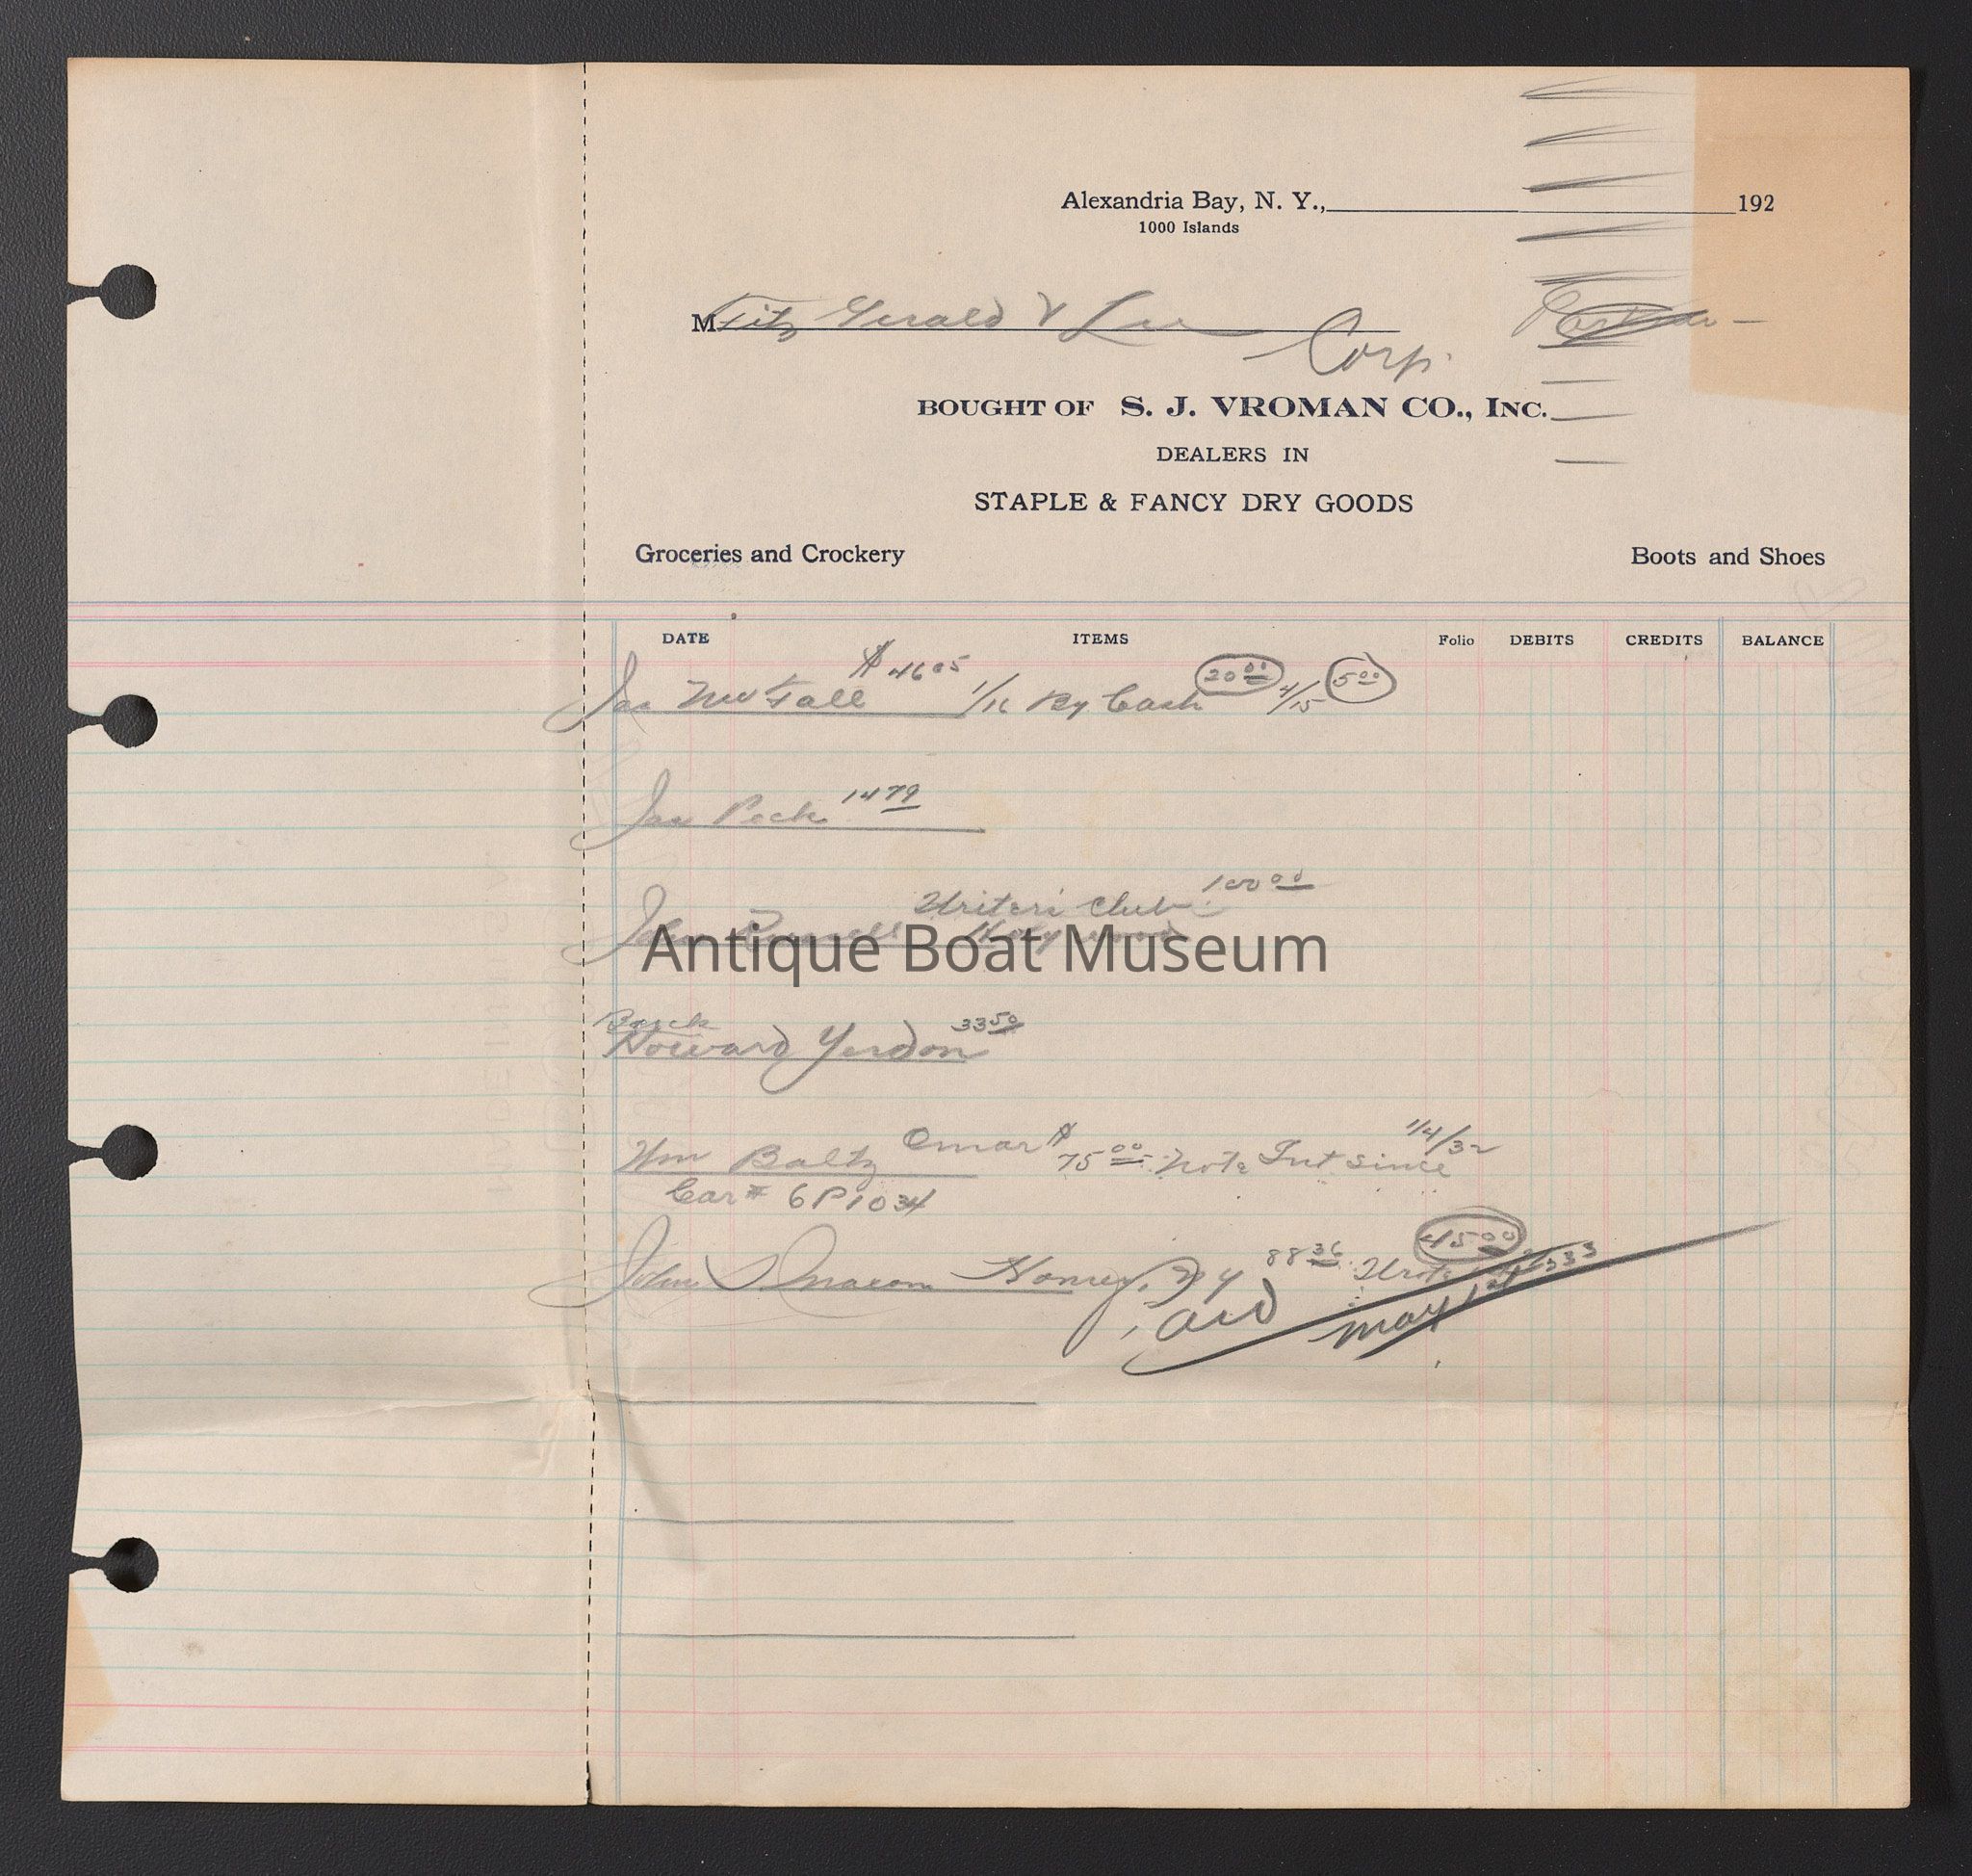 Alexandria Bay, N. Y., 192
1000 Islands
M Fitz Gerald & Lee
Corp.
BOUGHT OF S. J. VROMAN CO., INC.
DEALERS IN
STAPLE & FANCY DRY GOODS
Groceries and Crockery Boots and Shoes
DATE ITEMS Folio DEBITS CREDITS BALANCE
$4605
Jas 1/16 By Cash 20 00 4/15 5 00
Jas Peck 14 79
Writers Club 100 00
John Russell
Antique Boat Museum
Howard Yerdon 33 50
Wm Baltz Omar $75 00 Note Int since 1/4/32
Car # 6P1034
John 88 36 Wrote 45 00
Paid May 1st 333